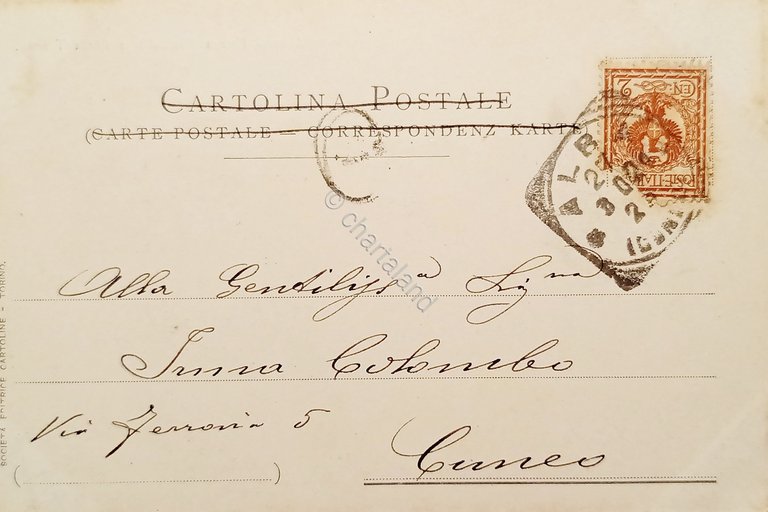 CARTOLINA POSTALE
(CARTE POSTALE - CORRESPONDENZ KARTE
CENT 2
POSTE ITAL
ALB
(CUNEO)
© chartaland
Alla Gentiliss.a Sig.na
Irma Colombo
Via Ferrovia 5
Cuneo
SOCIETÀ EDITRICE CARTOLINE - TORINO.